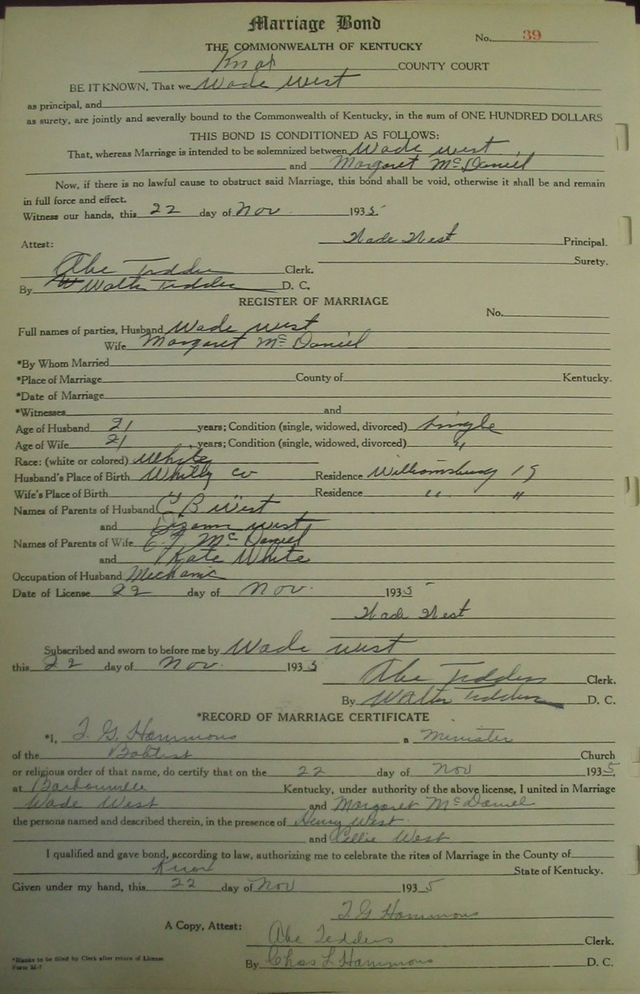 Marriage Bond
No. 39
THE COMMONWEALTH OF KENTUCKY
Knox COUNTY COURT
BE IT KNOWN, That we Wade West
as principal, and
as surety, are jointly and severally bound to the Commonwealth of Kentucky, in the sum of ONE HUNDRED DOLLARS
THIS BOND IS CONDITIONED AS FOLLOWS:
That, whereas Marriage is intended to be solemnized between Wade West
and Margaret McDaniel
Now, if there is no lawful cause to obstruct said Marriage, this bond shall be void, otherwise it shall be and remain
in full force and effect.
Witness our hands, this 22 day of Nov. 1935
Wade West Principal.
Attest:
Surety.
Abe Tedders Clerk.
By Walter Tedders D. C.
REGISTER OF MARRIAGE
No.
Full names of parties, Husband Wade West
Wife Margaret McDaniel
*By Whom Married
*Place of Marriage County of Kentucky.
*Date of Marriage
*Witnesses and
Age of Husband 21 years; Condition (single, widowed, divorced) Single
Age of Wife 21 years; Condition (single, widowed, divorced) "
Race: (white or colored) White
Husband's Place of Birth Whitly Co Residence Williamsburg Ky
Wife's Place of Birth Residence " "
Names of Parents of Husband C B West
and West
Names of Parents of Wife McDaniel
and Kate White
Occupation of Husband Mechanic
Date of License 22 day of Nov. 1935
Wade West
Subscribed and sworn to before me by Wade West
this 22 day of Nov. 1935
Abe Tedders Clerk.
By Walter Tedders D. C.
*RECORD OF MARRIAGE CERTIFICATE
*I, T. G. Hammons a Minister
of the Baptist Church
or religious order of that name, do certify that on the 22 day of Nov 1935
at Barbourville Kentucky, under authority of the above license, I united in Marriage
Wade West and Margaret McDaniel
the persons named and described therein, in the presence of Henry West
and West
I qualified and gave bond, according to law, authorizing me to celebrate the rites of Marriage in the County of
Knox State of Kentucky.
Given under my hand, this 22 day of Nov 1935
T G Hammons
A Copy, Attest:
Abe Tedders Clerk.
By Chas L Hammons D. C.
*Blanks to be filled by Clerk after return of License
Form M-7